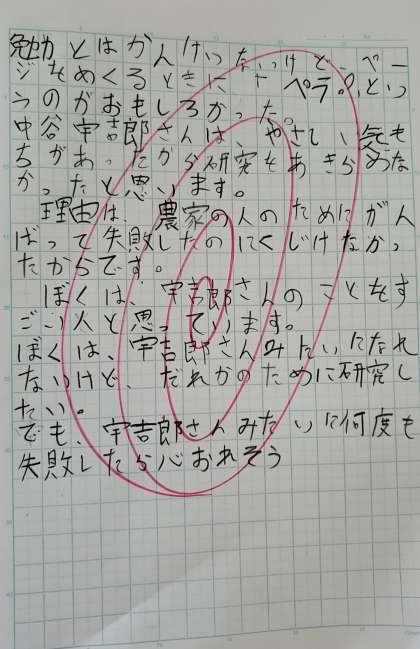 勉かとはかんけいないけど、ペー
ジをめくるときに、ペラ。。とい
うのがおもしろかった。
中谷宇吉郎さんは、やさしい気も
ちがあったから研究をあきらめな
かったと思います。
理由は、農家の人のためにがん
ばって失敗したのにくじけなかっ
たからです。
ぼくは、宇吉郎さんのことをす
ごい人と思っています。
ぼくは、宇吉郎さんみたいになれ
ないけど、だれかのために研究し
たい。
でも、宇吉郎さんみたいに何度も
失敗したら心おれそう